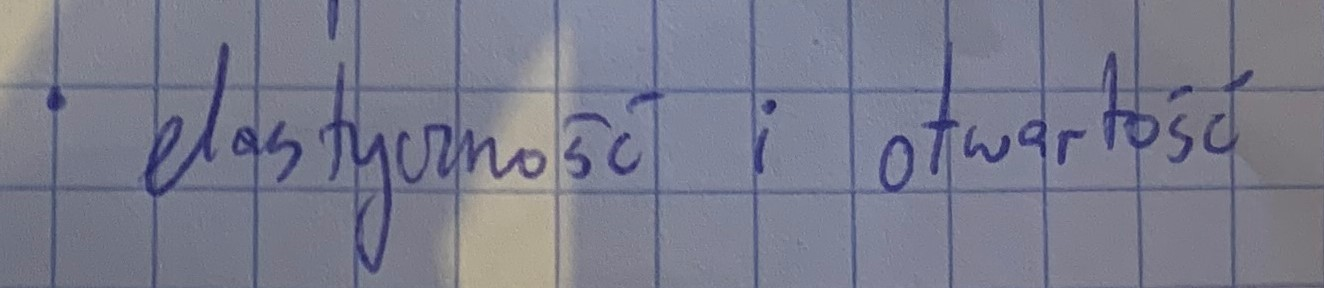 • elastyczność i otwartość